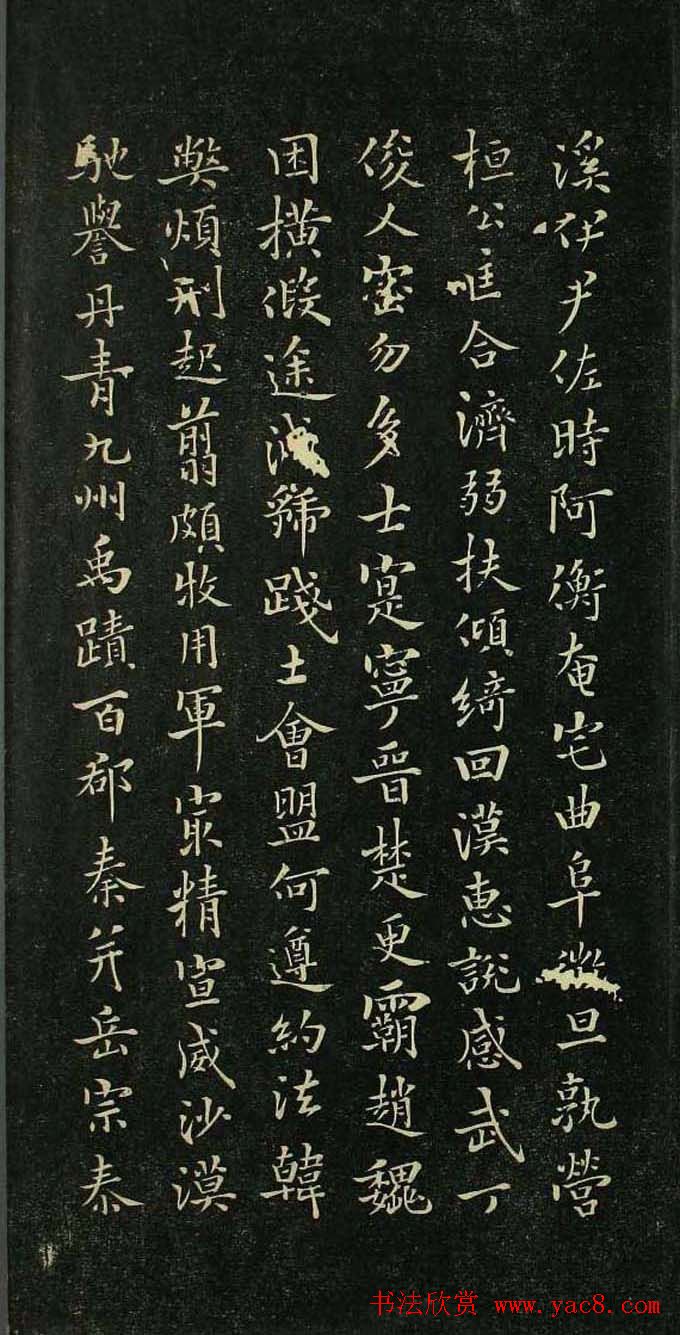 溪伊尹佐時阿衡奄宅曲阜微旦孰營
桓公匡合濟弱扶傾綺回漢惠說感武丁
俊乂密勿多士寔寧晉楚更霸趙魏
困橫假途滅虢踐土會盟何遵約法韓
弊煩刑起翦頗牧用軍㝡精宣威沙漠
馳譽丹青九州禹蹟百郡秦并岳宗泰
书法欣赏 www.yac8.com